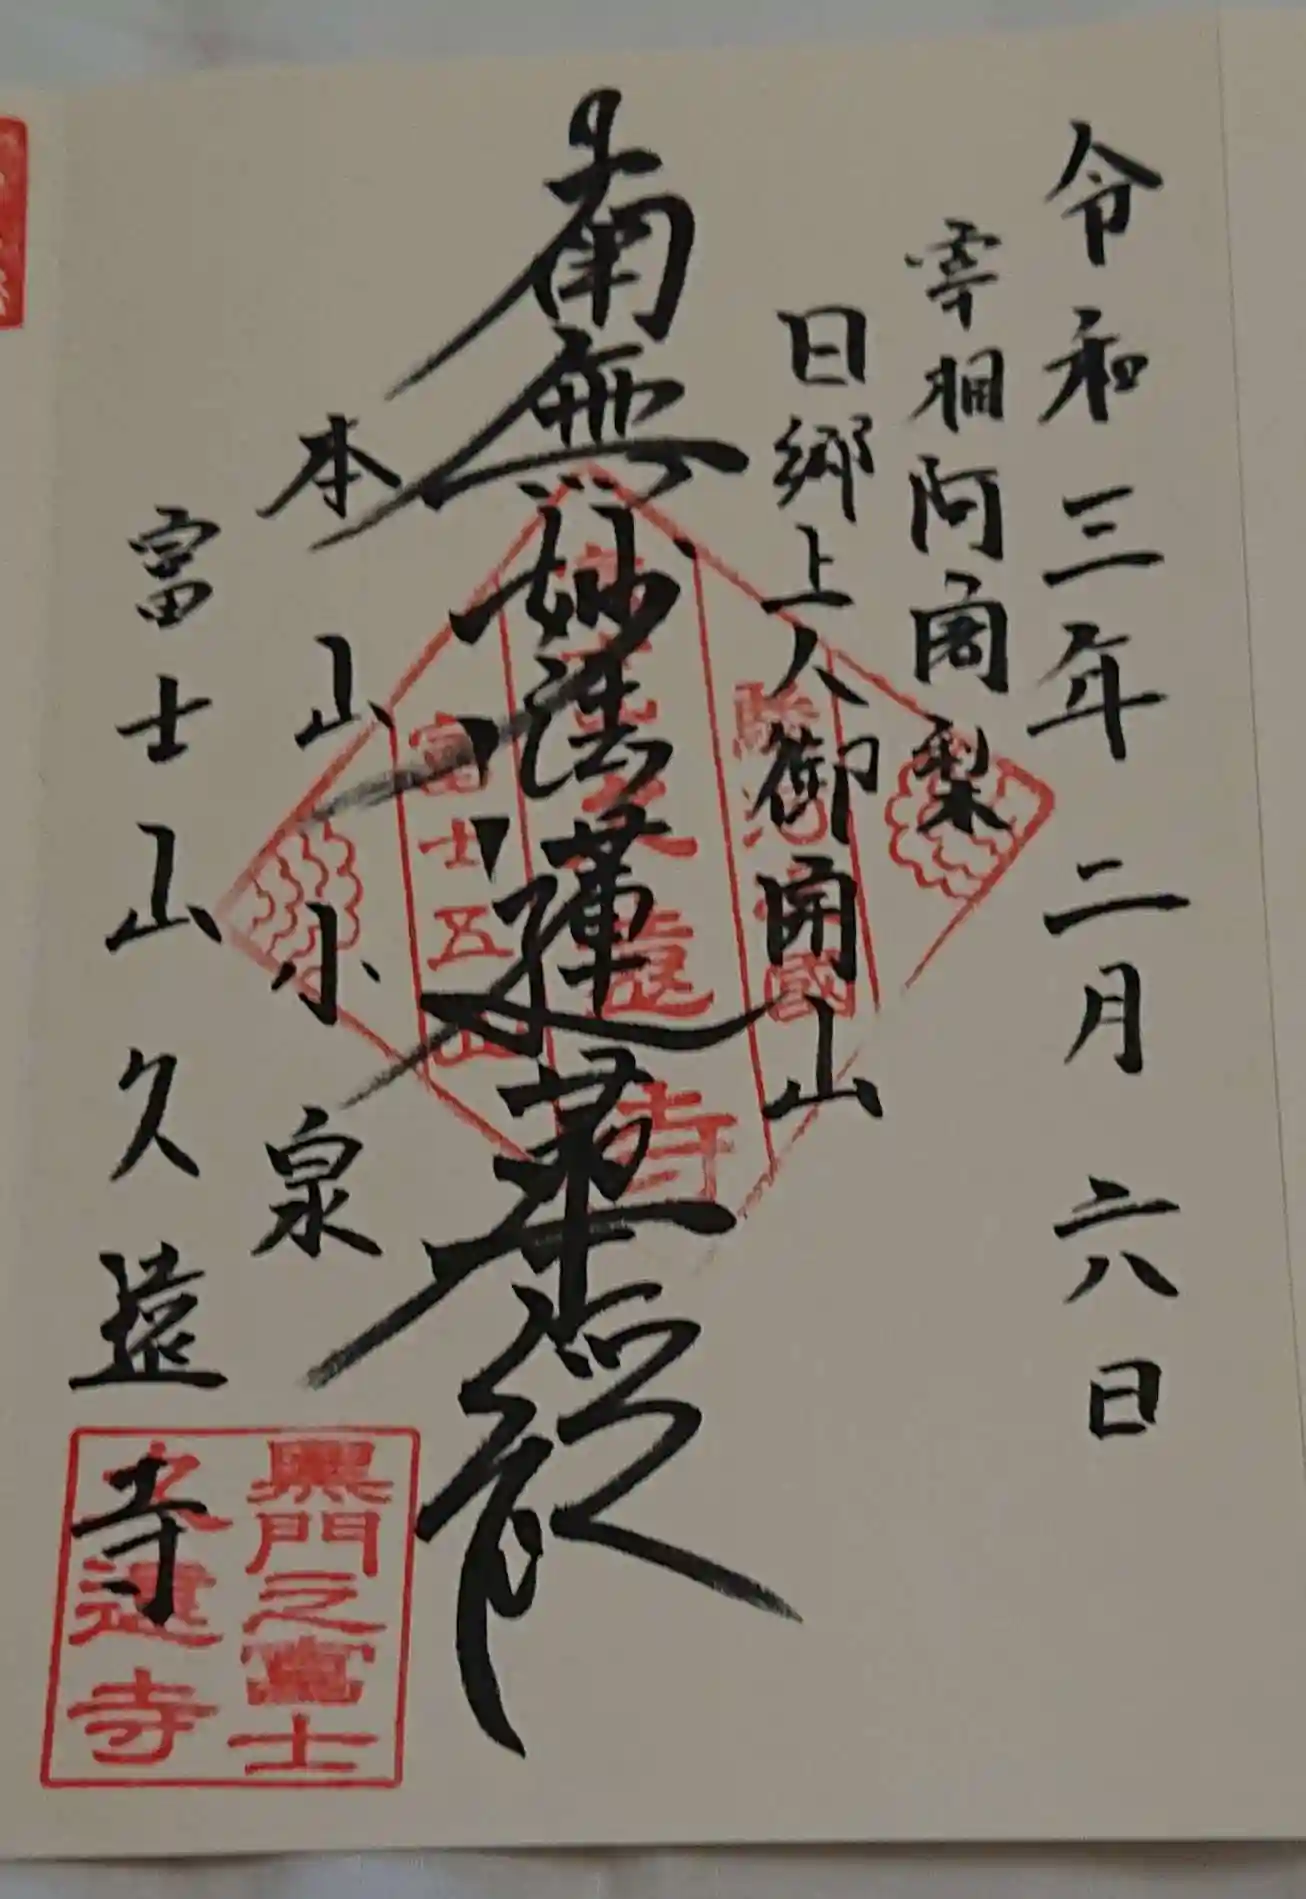 令和三年二月六日
宰相阿闍梨
日郷上人御開山
南無妙法蓮華経
本山小泉
富士山久遠寺
富士五山
寺
黒門之富士
久遠寺